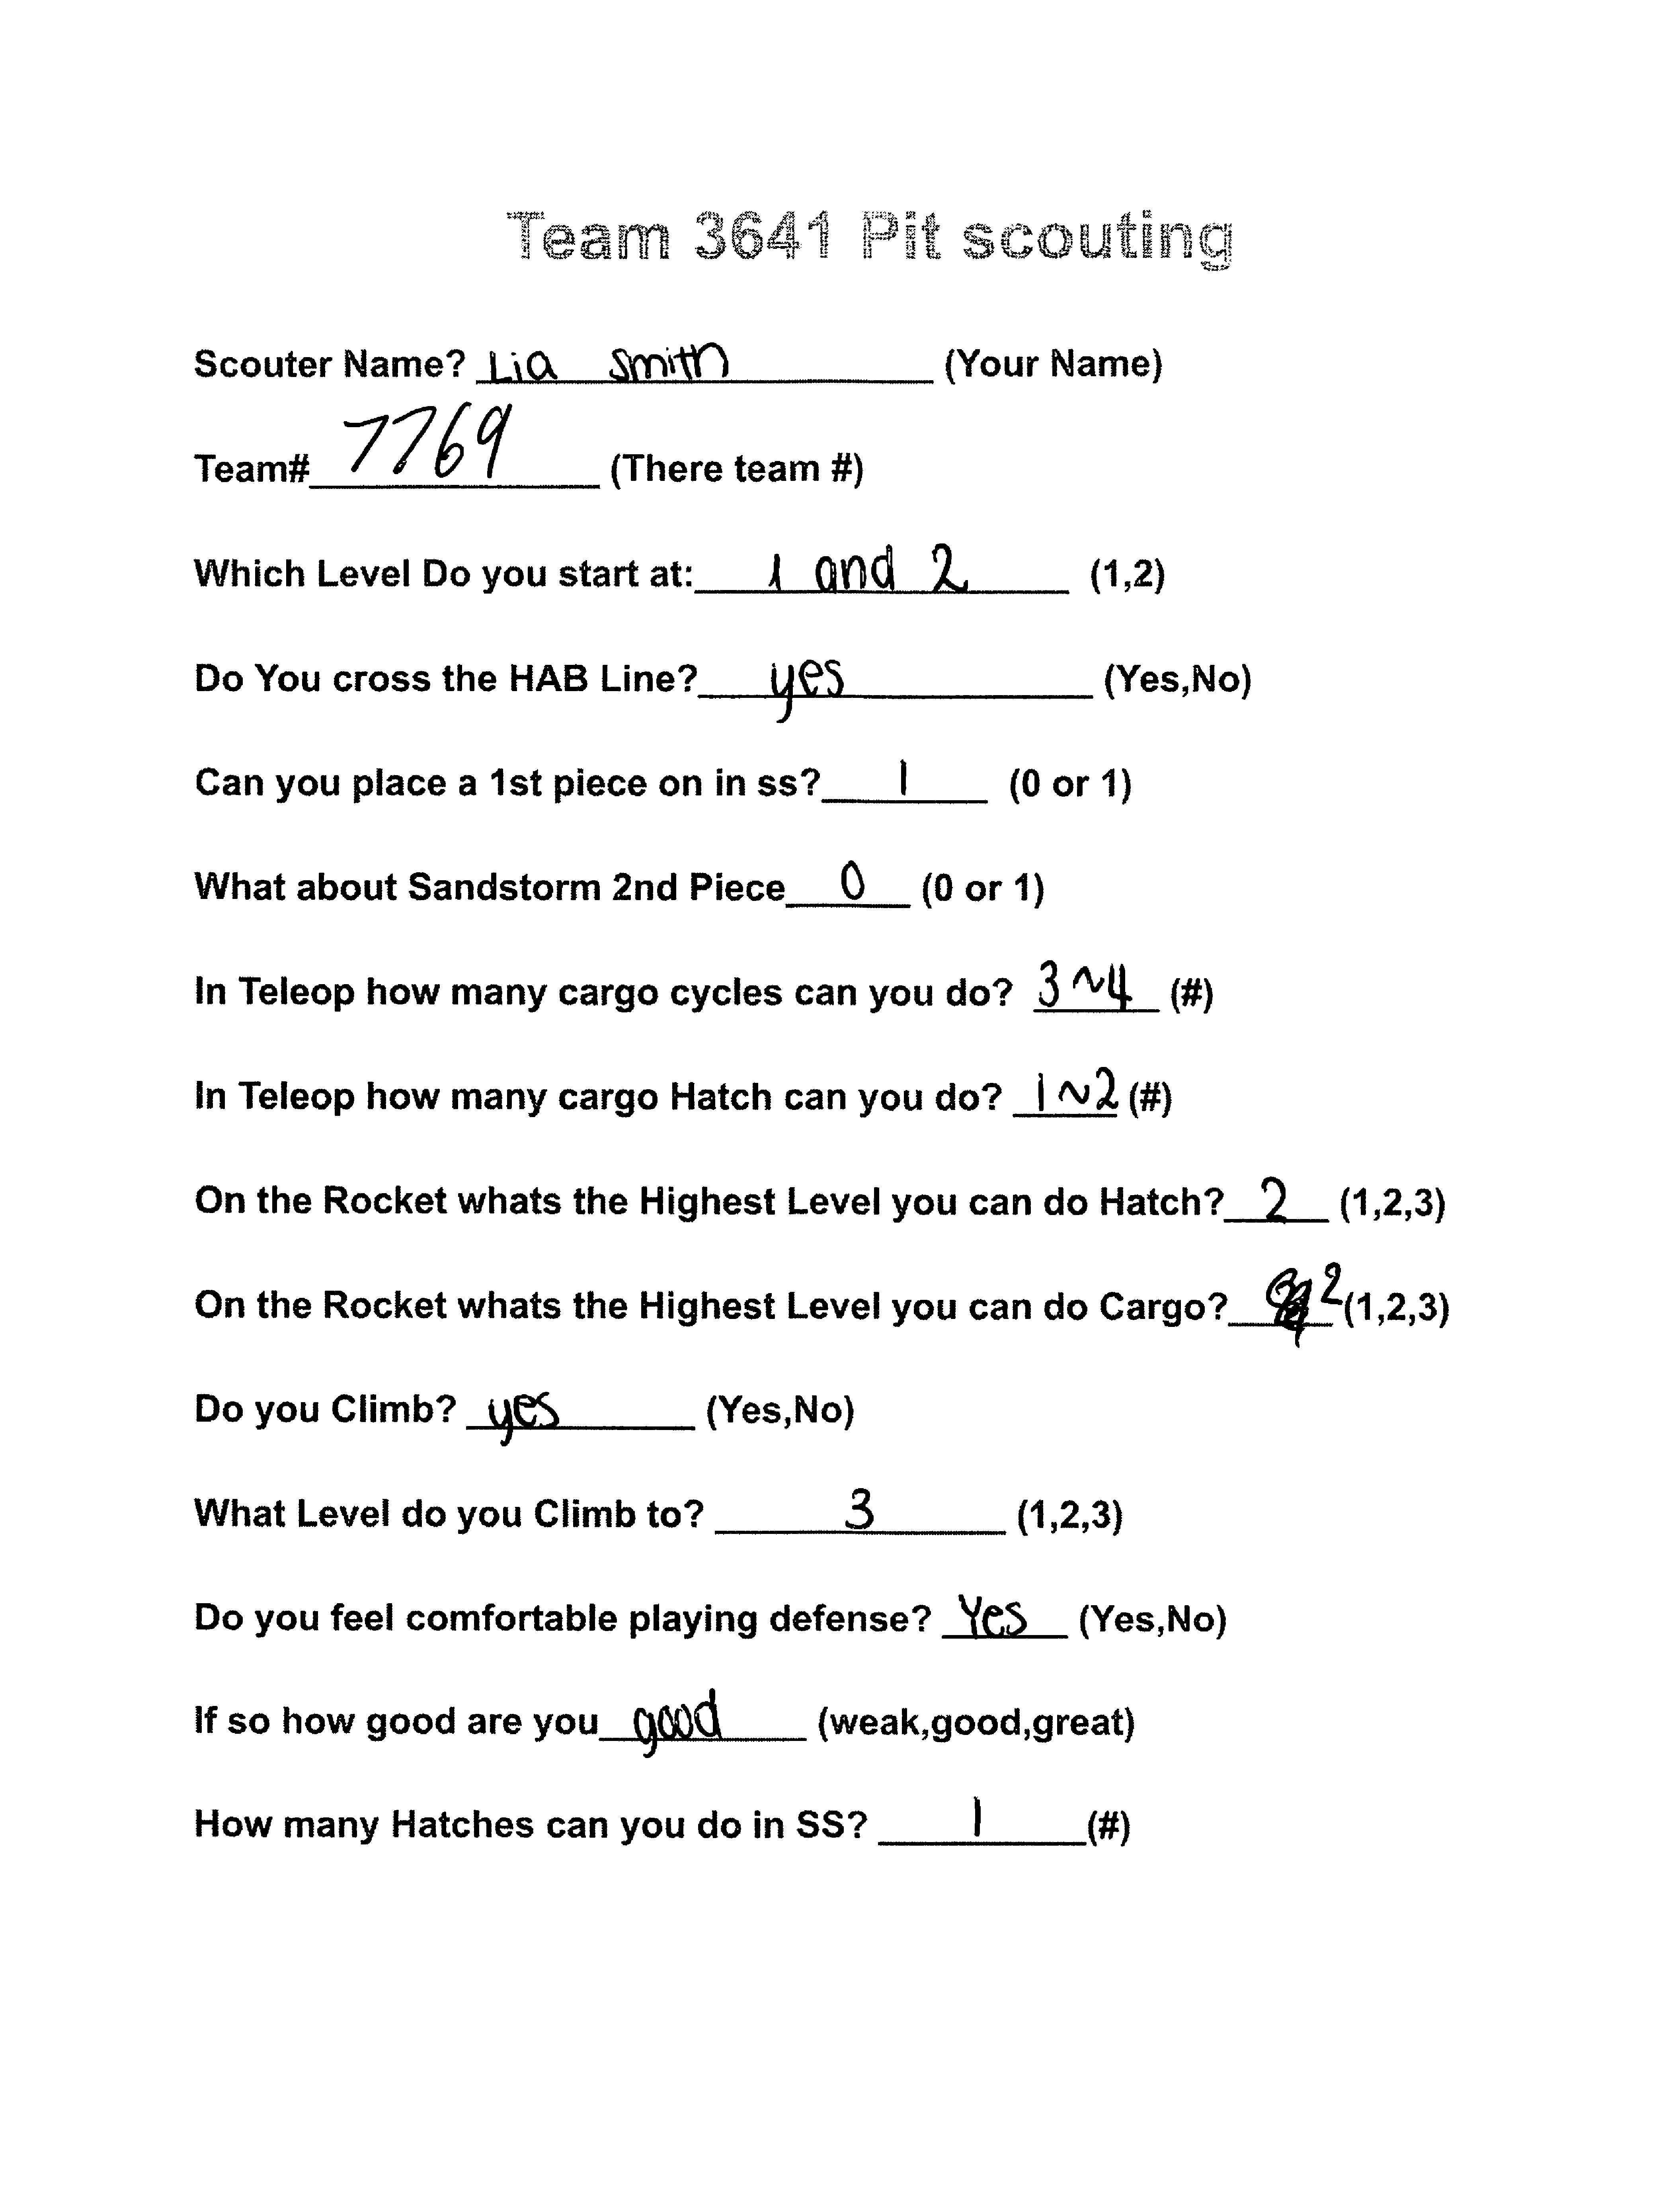 Team 3641 Pit scouting
Scouter Name? Lia Smith (Your Name)
Team# 7769 (There team #)
Which Level Do you start at: 1 and 2 (1,2)
Do You cross the HAB Line? yes (Yes,No)
Can you place a 1st piece on in ss? 1 (0 or 1)
What about Sandstorm 2nd Piece 0 (0 or 1)
In Teleop how many cargo cycles can you do? 3~4 (#)
In Teleop how many cargo Hatch can you do? 1~2 (#)
On the Rocket whats the Highest Level you can do Hatch? 2 (1,2,3)
On the Rocket whats the Highest Level you can do Cargo? 2 (1,2,3)
Do you Climb? yes (Yes,No)
What Level do you Climb to? 3 (1,2,3)
Do you feel comfortable playing defense? Yes (Yes,No)
If so how good are you good (weak,good,great)
How many Hatches can you do in SS? 1 (#)